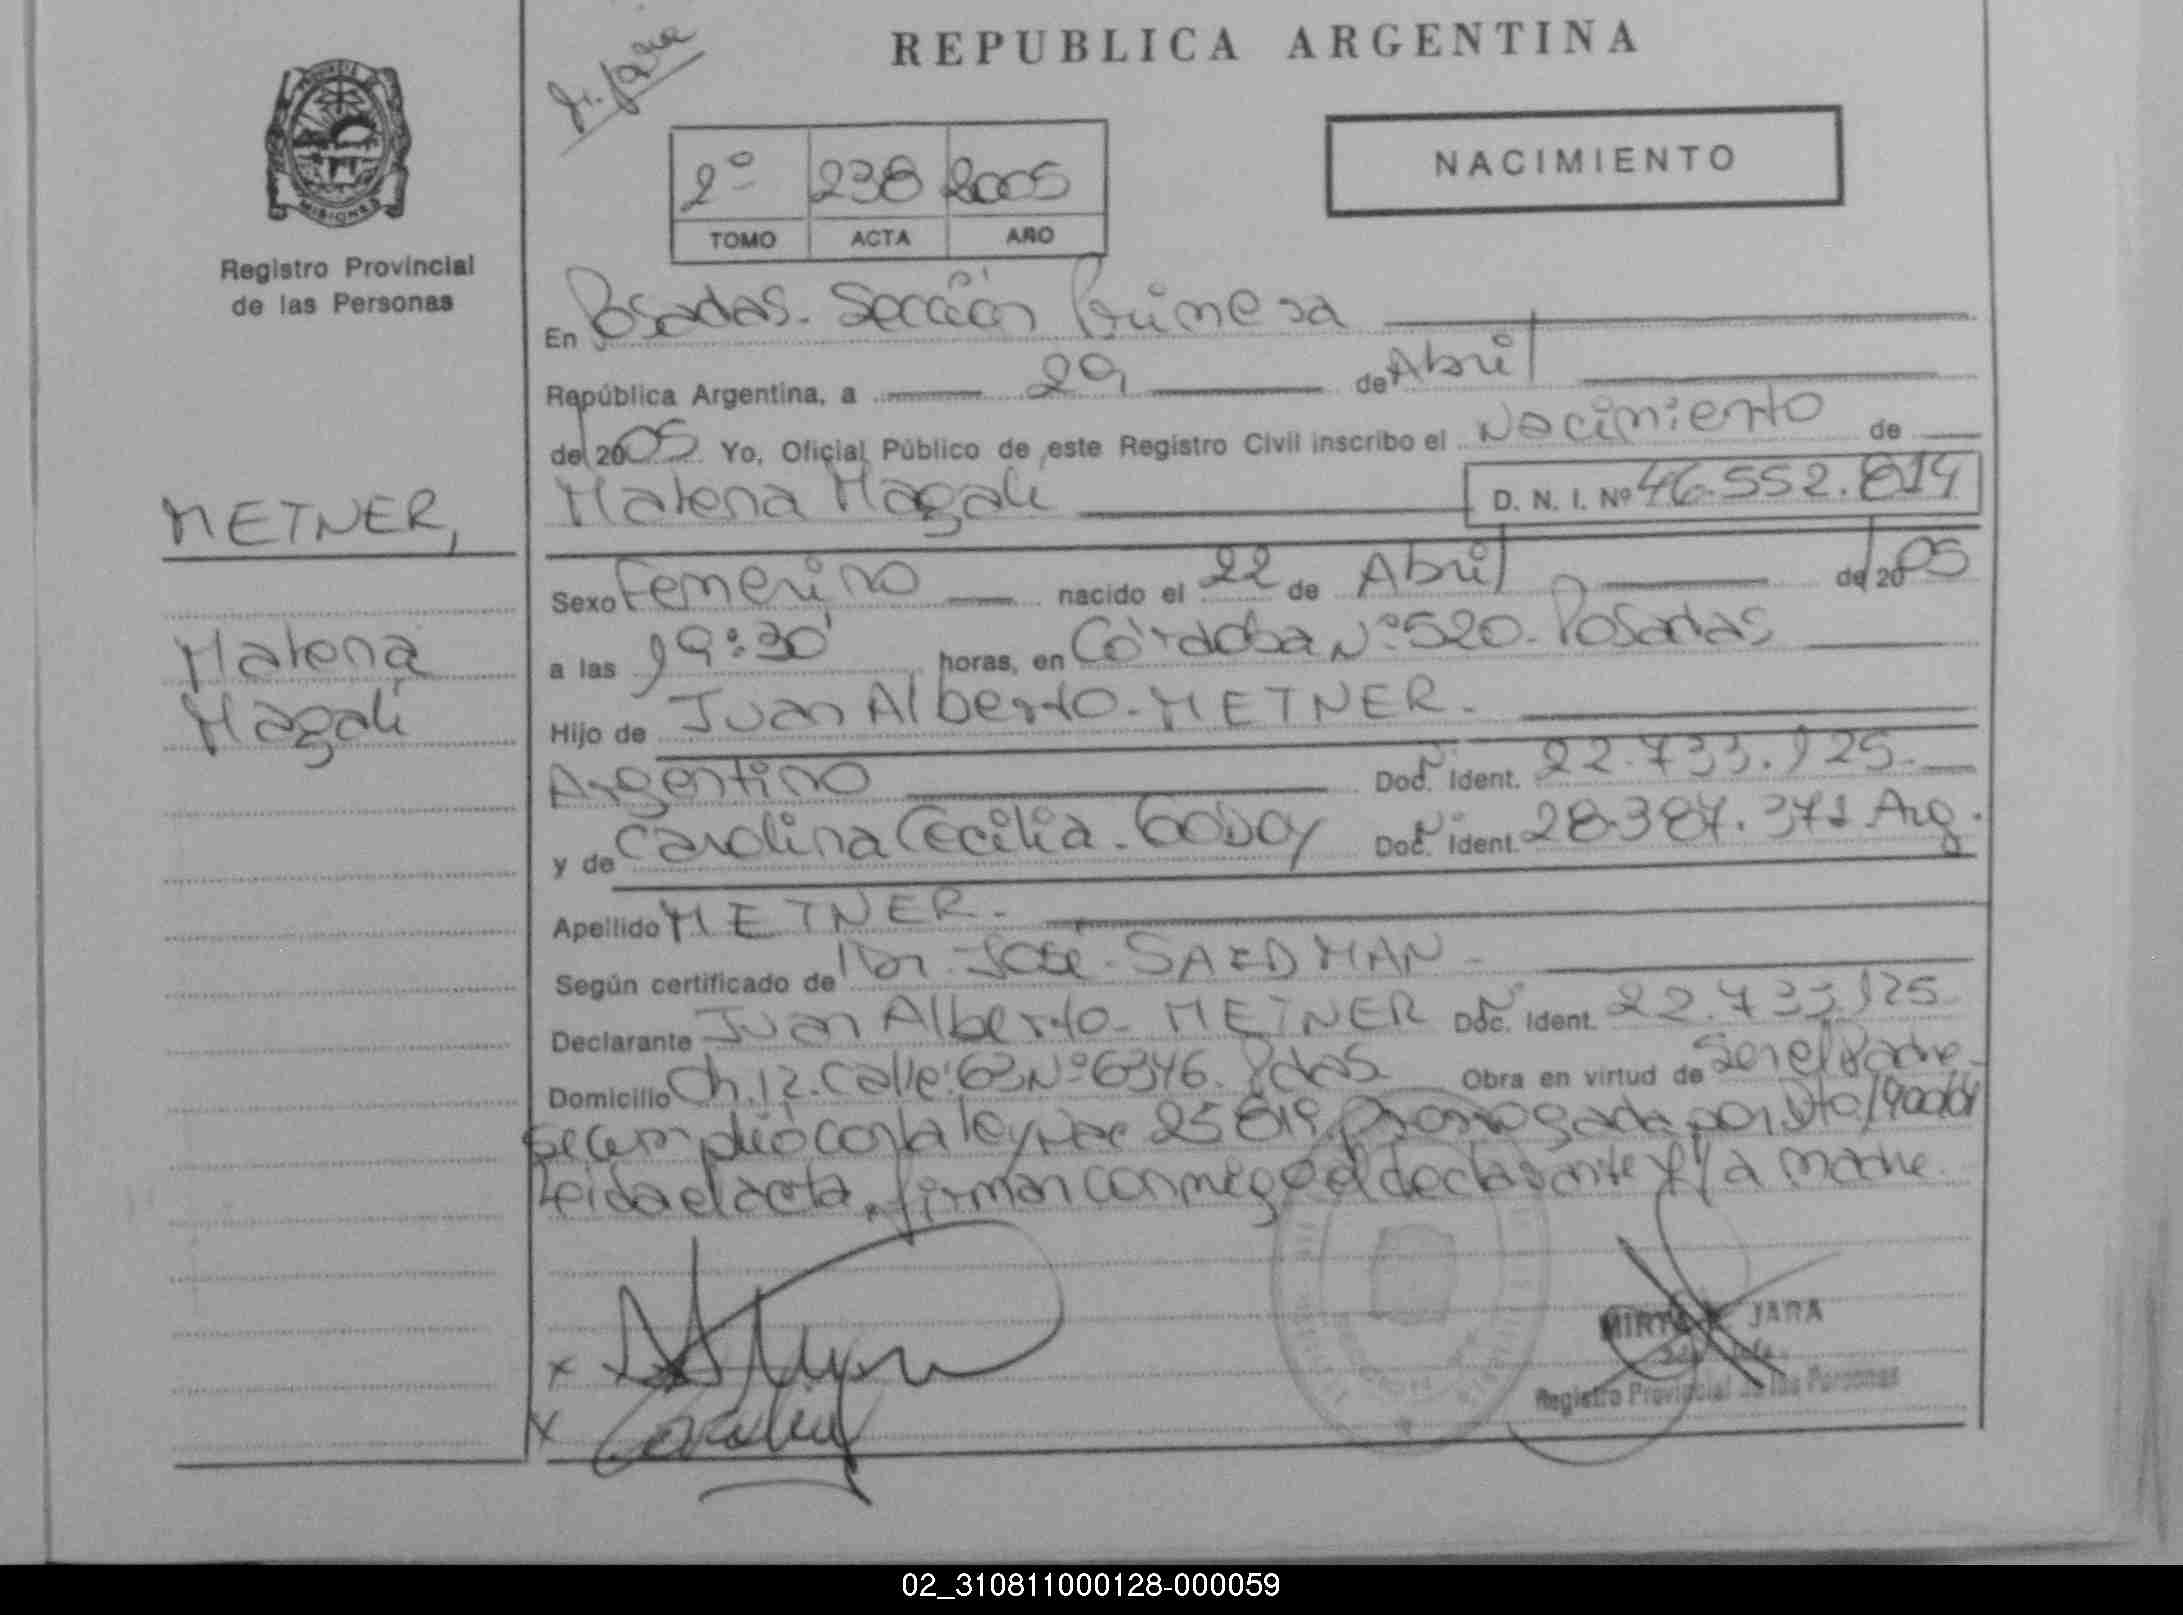 REPUBLICA ARGENTINA
MISIONES
Registro Provincial
de las Personas
2º 238 2005
TOMO ACTA AÑO
NACIMIENTO
En Posadas. Sección Primera
República Argentina, a 29 de Abril
del 2005 Yo, Oficial Público de este Registro Civil inscribo el Nacimiento de
Malena Magalí D. N. I. Nº 46.552.814
METNER,
Malena
Magalí
Sexo Femenino nacido el 22 de Abril del 2005
a las 19:30 horas, en Córdoba Nº 520. Posadas
Hijo de Juan Alberto METNER.
Argentino Doc. Ident. 22.733.125.
y de Carolina Cecilia. GODOY Doc. Ident. 28.387.371 Arg.
Apellido METNER.
Según certificado de Dr. José SAEDMAN
Declarante Juan Alberto METNER Doc. Ident. 22.733.125
Domicilio Ch. 12. Calle: 63 Nº 6346. Pdas. Obra en virtud de Ser el Padre
Se cumplió con la ley Nac 25819 Prorrogada por Dto
Leída el acta, firman conmigo el declarante y la madre.
JARA
Registro Provincial de las Personas
02_310811000128-000059